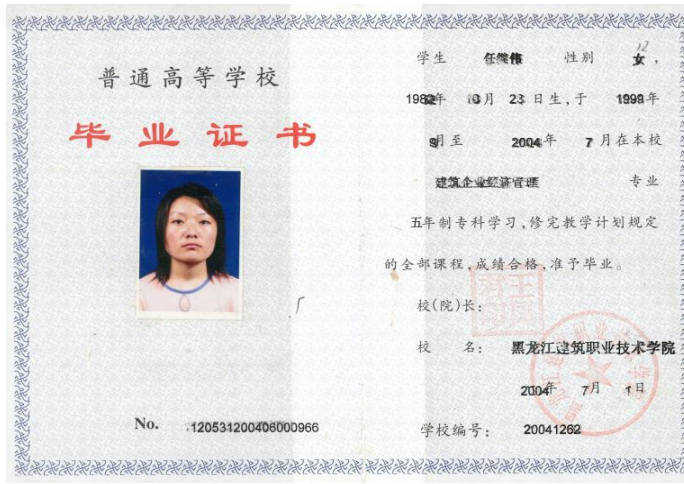 普通高等学校
毕业证书
No. 120531200406000966
学生 任 伟 性别 女,
1982年 月 23日生,于 1999年
9月至 2004年 7月在本校
建筑企业经济管理 专业
五年制专科学习,修完教学计划规定
的全部课程,成绩合格,准予毕业。
校(院)长:
校 名: 黑龙江建筑职业技术学院
2004年 7月 1日
学校编号: 20041262